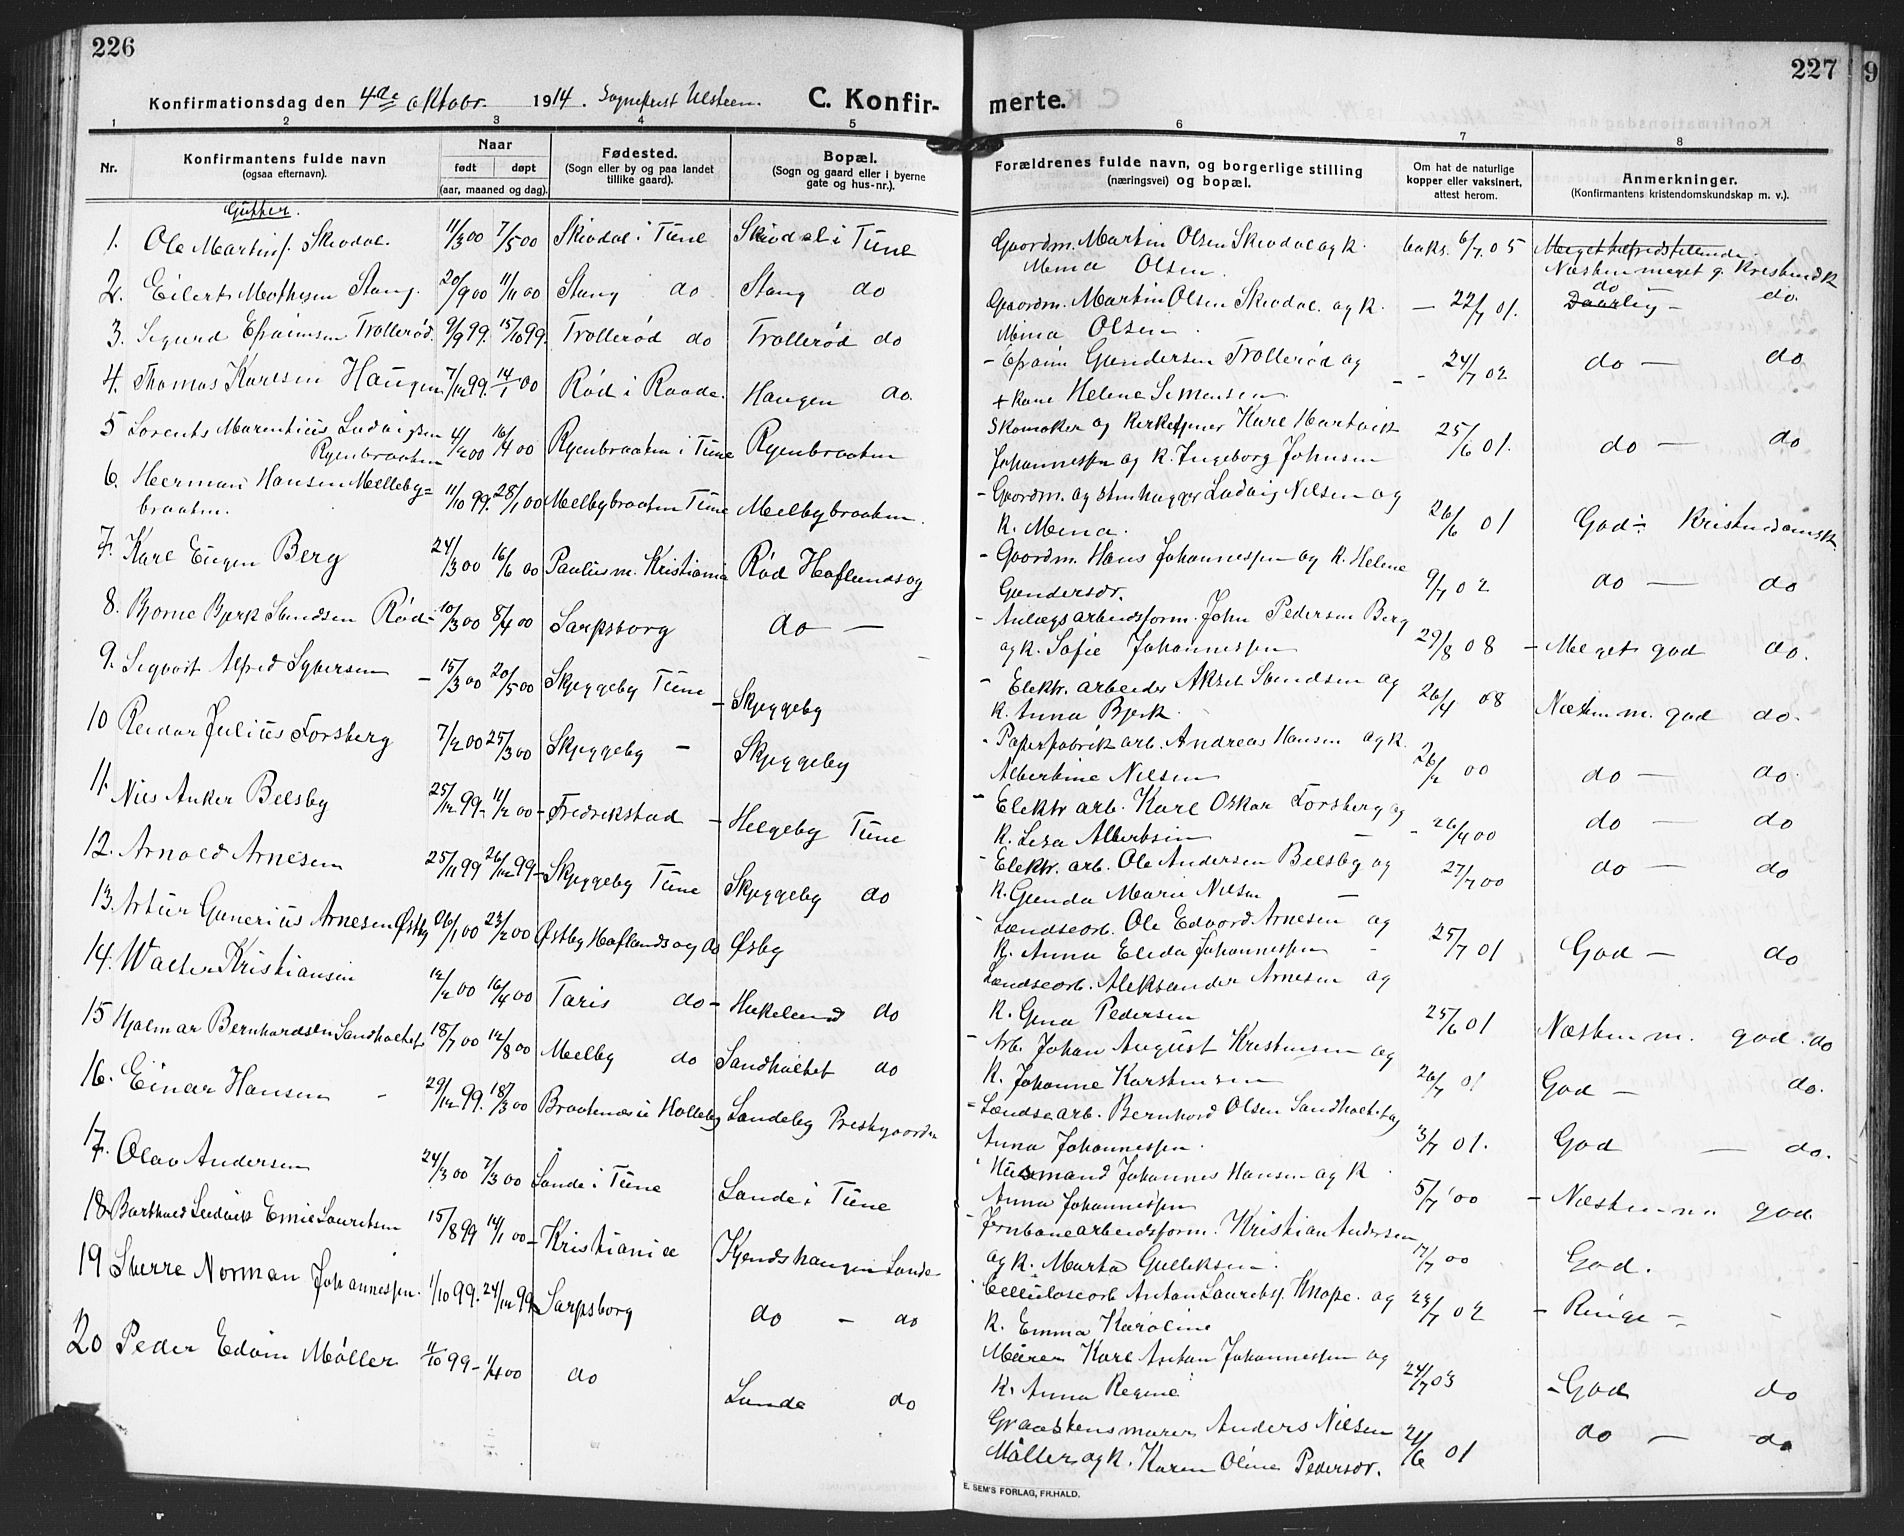 226
Konfirmationsdag den 4de oktobr. 1914. Sogneprest Ulsteen.
C. Konfir-
1 2 3 4 5
Nr.
Konfirmantens fulde navn
(ogsaa efternavn).
Naar
født døpt
(aar, maaned og dag).
Fødested.
(Sogn eller by og paa landet
tillike gaard).
Bopæl.
(Sogn og gaard eller i byerne
gate og hus-nr.).
Gutter.
1. Ole Martins. Skivdal. 11/3 00 7/5 00 Skivdal i Tune Skivdal i Tune
2. Eilert Mathesen Stang. 20/9 00 11/11 00 Stang do Stang do
3. Sigurd Efraimsen Trollerød. 9/9 99. 15/10 99. Trollerød do Trollerød do
4. Thomas Karlsen Haugen 7/12 99. 14/1 00 Rød i Raade. Haugen do.
5 Lorents Marentius Ludvigsen
Ryenbraaten 4/2 00 16/4 00 Ryenbraaten i Tune Ryenbraaten
6. Herman Hansen Melleby=
braaten. 11/10 99. 28/1 00 Melbybraaten Tune Melbybraaten.
7. Karl Eugen Berg 24/3 00 16/6 00 Paulus m. Kristiania Rød Haflundsog
8. Bjarne Bjerk Sundsen Rød 10/3 00 8/4 00 Sarpsborg do —
9. Sigvart Alfred Syversen 15/3 00 20/5 00 Skjeggeby Tune - Skjeggeby
10 Reidar Julius Forsberg 7/2 00 25/3 00 Skjeggeby - Skjeggeby
11. Nils Anker Belsby 25/12 99- 11/2 00- Fredrikstad - Helgeby Tune
12. Arnold Arnesen 25/11 99 26/12 99- Skjeggeby Tune Skjeggeby do
13. Artur Gunerius Arnesen Østby 26/1 00 23/2 00 Østby Haflundsog do Øsby
14. Walter Kristiansen 12/2 00 16/4 00 Taris do- Hukelund do
15 Hjalmar Bernhardsen Sandholtet 18/7 00 12/8 00 Melby do Sandholtet do
16. Einar Hansen - 29/12 99. 18/3 00 Braatnæs i Holleby Landeby Prestgaarden
17. Olav Andersen 24/3 00 7/3 00 Lande i Tune Lande i Tune
18. Barthold Ludvik Emil Lauritsen 15/8 99 14/1 00- Kristiania Kjendshaugen Lande
19 Sverre Norman Johannessen. 1/10 99. 24/12 99 Sarpsborg do - do
20 Peder Edvin Møller 11/10 99- 1/4 00 do Lande do
227
9
merte.
6 7 8
Forældrenes fulde navn, og borgerlige stilling
(næringsvei) og bopæl.
Om hat de naturlige
kopper eller vaksinert,
attest herom.
Anmerkninger.
(Konfirmantens kristendomskundskap m. v.).
Gaardm. Martin Olsen Skivdal og k. vaks. 6/7 05 Meget tilfredstillende
Mina Olsen. Næsten meget g. Kristendk
Gaardm. Martin Olsen Skivdal. og k. — 22/7 01. do Daarlig - do.
Mina Olsen.
- Efraim Gundersen Trollerød og -- 24/7 02 do — do
+ kone Helene Simensen.
Skomaker og Kirketjener Karl Hartvik 25/6 01. do — do
Johannessen og k. Ingeborg Johnsen
- Gaardm. og stenhugger Ludvig Nilsen og 26/6 01 God ÷ Kristendomsk.
k. Mina.
- Gaardm. Hans Johannessen og k. Helene 9/7 02 do — do
Gundersdr.
- Anlægsarbeidsform. John Pedersen Berg 29/8 08 - Meget god do.
og k. Sofie Johannessen
- Elektr. arbeider Aksel Sundsen og 26/4 08 Næsten m. god do.
k. Anna Bjerk.
- Papirfabrik arb. Andreas Hansen og k. 26/2 00 do — do.
Albertine Nilsen
- Elektr arb. Karl Oskar Forsberg og - 26/9 00 do — do
k. Lisa Albertsen —
- Elektr. arb. Ole Andersen Belsby og 27/7 00 do — do
k. Gunda Marie Nilsen —
- Lændsearb. Ole Edvard Arnesen og 25/7 01 God — do
k. Anna Elida Johannessen -
Lændsearb. Aleksander Arnesen og 25/6 01 Næsten m. god. do
k. Gina Pedersen
- Arb. Johan August Kristensen og 26/7 01 God — do.
k. Johanne Karstensen
- Lændsearb. Bernhard Olsen Sandholtet og 3/7 01. God — do.
Anna Johannessen.
Husmand Johannes Hansen og k 5/7 00 - Næsten m god
Anna Johannessen
- Jernbanearbeidsform. Kristian Andersen 17/7 00 God.
og k. Marta Gulleksen.
Cellulosearb Anton Lauritss. Knope. og 23/7 02 - Ringe -
k. Emma Karoline
Murer Karl Anton Johannessen og 24/7 03 - God do
k. Anna Regine
Graastensmurer Anders Nilsen 21/6 01 do — do
Møller og k. Karen Oline Pedersdr.
E. SEM'S FORLAG, FR.HALD.